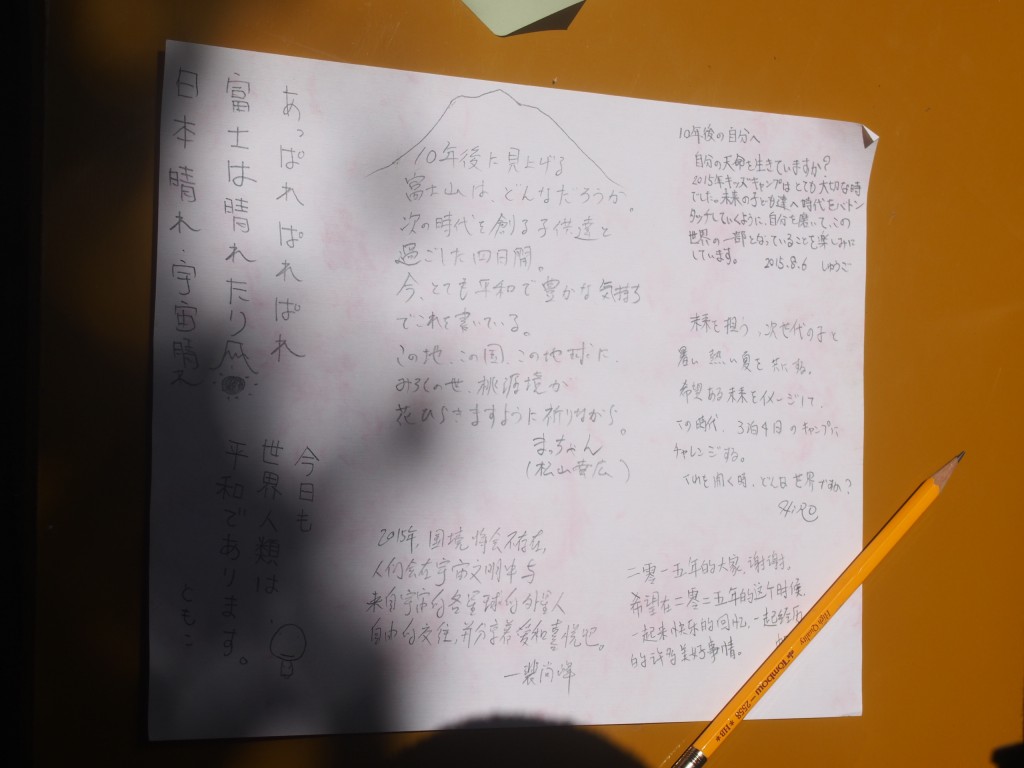 あっぱれ ぱれぱれ
富士は晴れたり
日本晴れ・宇宙晴れ
今日も
世界人類は、
平和であります。
ともこ
10年後に見上げる
富士山は、どんなだろうか。
次の時代を創る子供達と
過ごした四日間。
今、とても平和で豊かな気持ち
でこれを書いている。
この地、この国、この地球に、
みろくの世、桃源境が
花ひらきますように祈りながら。
まっちゃん
(松山 広)
10年後の自分へ
自分の天命を生きていますか?
2015年キッズキャンプはとても大切な時
でした。未来の子ども達へ時代をバトン
タッチしていくように、自分を磨いて、この
世界の一部となっていることを楽しみに
しています。 2015.8.6 しゅうご
未来を担う、次世代の子と
暑い熱い夏を共にする。
希望ある未来をイメージして、
この時代、3泊4日のキャンプに
チャレンジする。
これを開く時、どんな世界ですか?
HIRO
2015年,国境将会不存在,
人们会在宇宙文明中与
来自宇宙的各星球的外星人
自由的交往,并分享着爱和喜悦吧。
一裴尚峰
二零一五年的大家,谢谢。
希望在二零二五年的这个时候,
一起来快乐的回忆,一起经历
的许多美好事情。
High Quality
Tombow
2558
HB